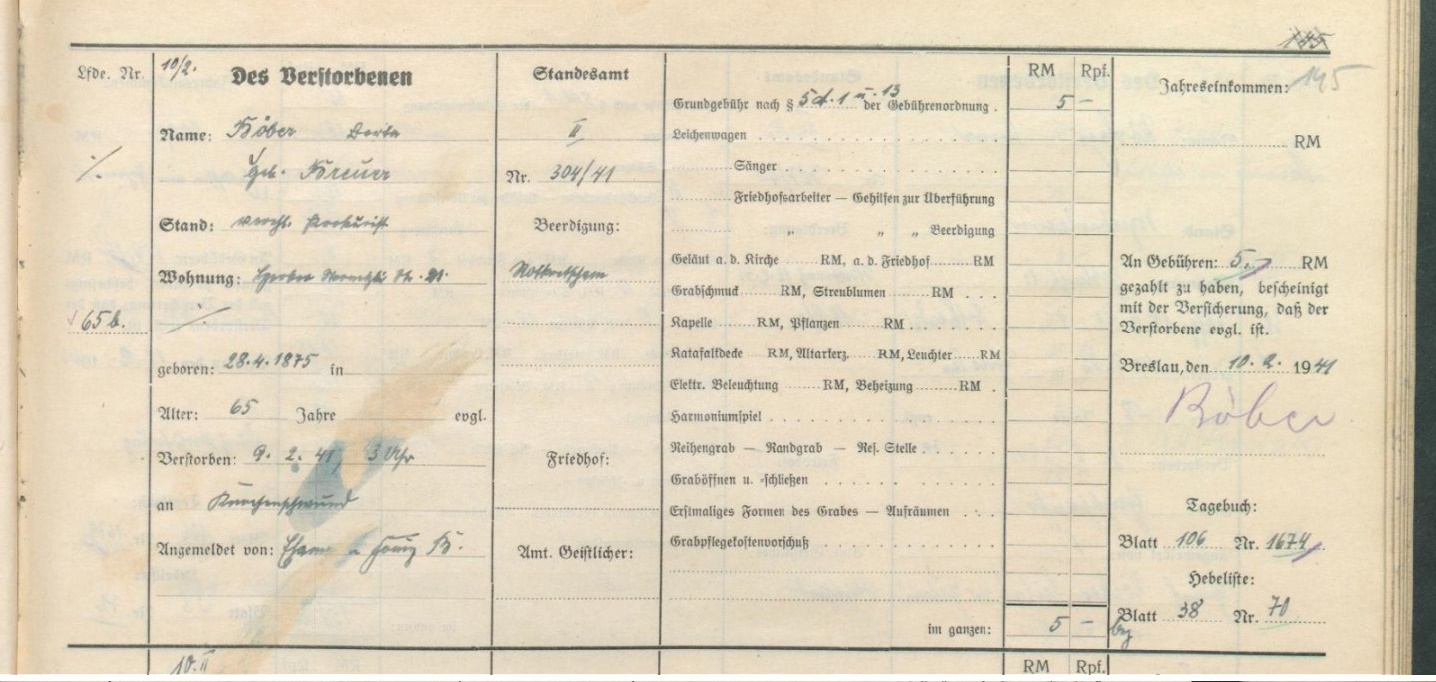 145
Lfde. Nr.
10/2.
Des Verstorbenen
Name: Röber
geb.
Stand: verehl. Prokurist
Wohnung:
65 b.
geboren: 28.4.1875 in
Alter: 65 Jahre evgl.
Verstorben: 9. 2. 41, 3 Uhr
an
Angemeldet von:
10. II
Standesamt
II
Nr. 304/41
Beerdigung:
Friedhof:
Amt. Geistlicher:
RM Rpf.
Grundgebühr nach § 5 d. 1 u. 13 der Gebührenordnung . 5 –
Leichenwagen
Sänger
Friedhofsarbeiter — Gehilfen zur Überführung
„ „ „ Beerdigung
Geläut a. d. Kirche RM, a. d. Friedhof RM
Grabschmuck RM, Streublumen RM
Kapelle RM, Pflanzen RM
Katafaltdecke RM, Altarkerz. RM, Leuchter RM
Elektr. Beleuchtung RM, Beheizung RM
Harmoniumspiel
Reihengrab — Randgrab — Res. Stelle
Graböffnen u. -schließen
Erstmaliges Formen des Grabes — Aufräumen
Grabpflegekostenvorschuß
im ganzen: 5 –
RM Rpf.
145
Jahreseinkommen:
RM
An Gebühren: 5.- RM
gezahlt zu haben, bescheinigt
mit der Versicherung, daß der
Verstorbene evgl. ist.
Breslau, den 10. 2. 1941
Röber
Tagebuch:
Blatt 106 Nr. 1674
Hebeliste:
Blatt 38 Nr. 70
bez